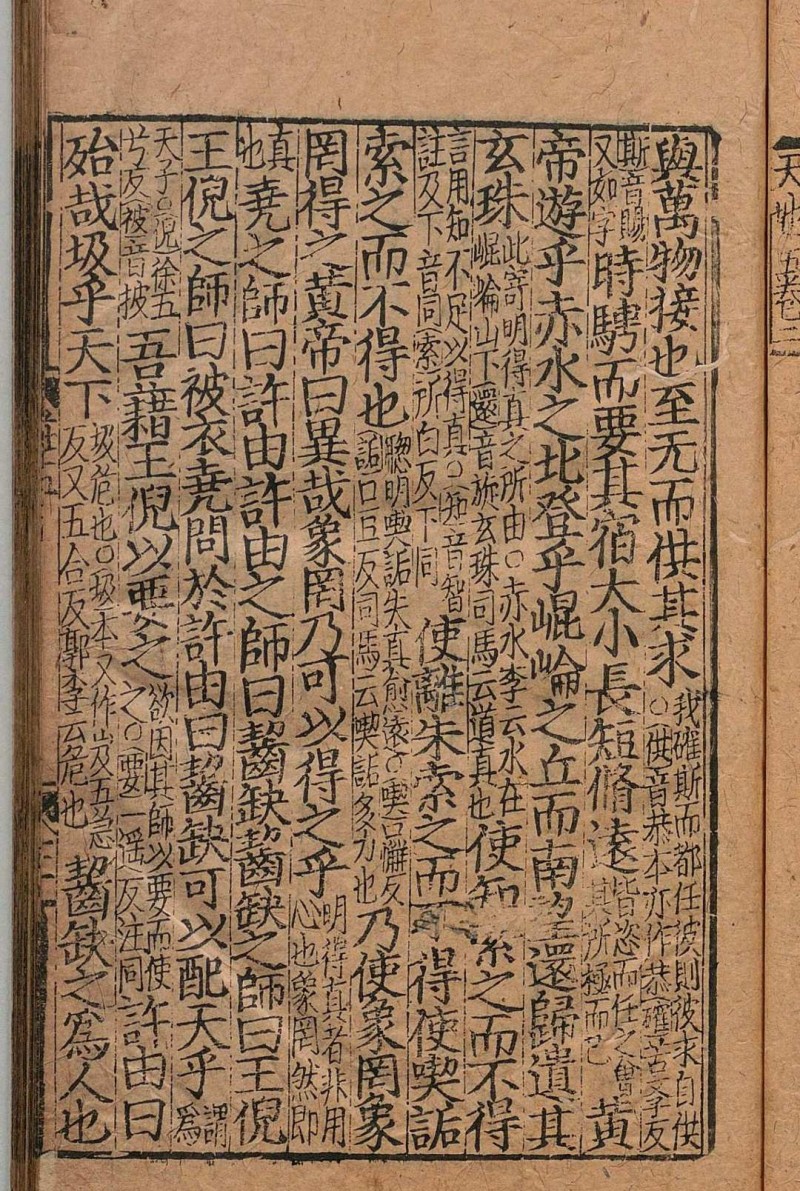 與萬物接也至无而供其求我確斯而都任彼則彼求自供○供音恭本亦作恭確苦學反
斯音賜又如字時騁而要其宿大小長短脩遠皆恣而任之會其所極而已黃
帝遊乎赤水之北登乎崐崘之丘而南望還歸遺其
玄珠此寄明得真之所由○赤水李云水在崐崘山下還音旋玄珠司馬云道真也使知索之而不得
言用知不足以得真○知音智註及下音同索所白反下同使離朱索之而不得使喫詬
索之而不得也聰明喫詬失真愈遠○喫口懈反詬口豆反司馬云喫詬多力也乃使象罔象
罔得之黃帝曰異哉象罔乃可以得之乎明得真者非用心也象罔然即
真也堯之師曰許由許由之師曰齧缺齧缺之師曰王倪
王倪之師曰被衣堯問於許由曰齧缺可以配天乎謂為
天子○倪徐五兮反被音披吾藉王倪以要之欲因其師以要而使之○要一遥反注同許由曰
殆哉圾乎天下圾危也○圾本又作岌五急反又五合反郭李云危也齧缺之為人也
天地五卷二